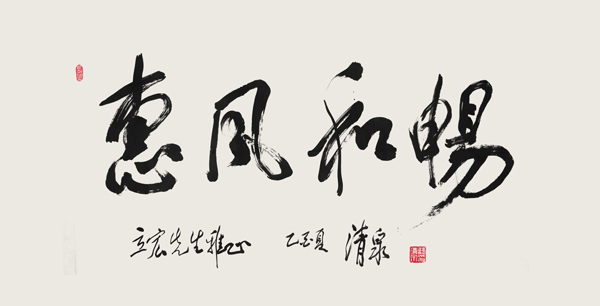 惠风和畅
立宏先生雅正 乙丑夏 清泉